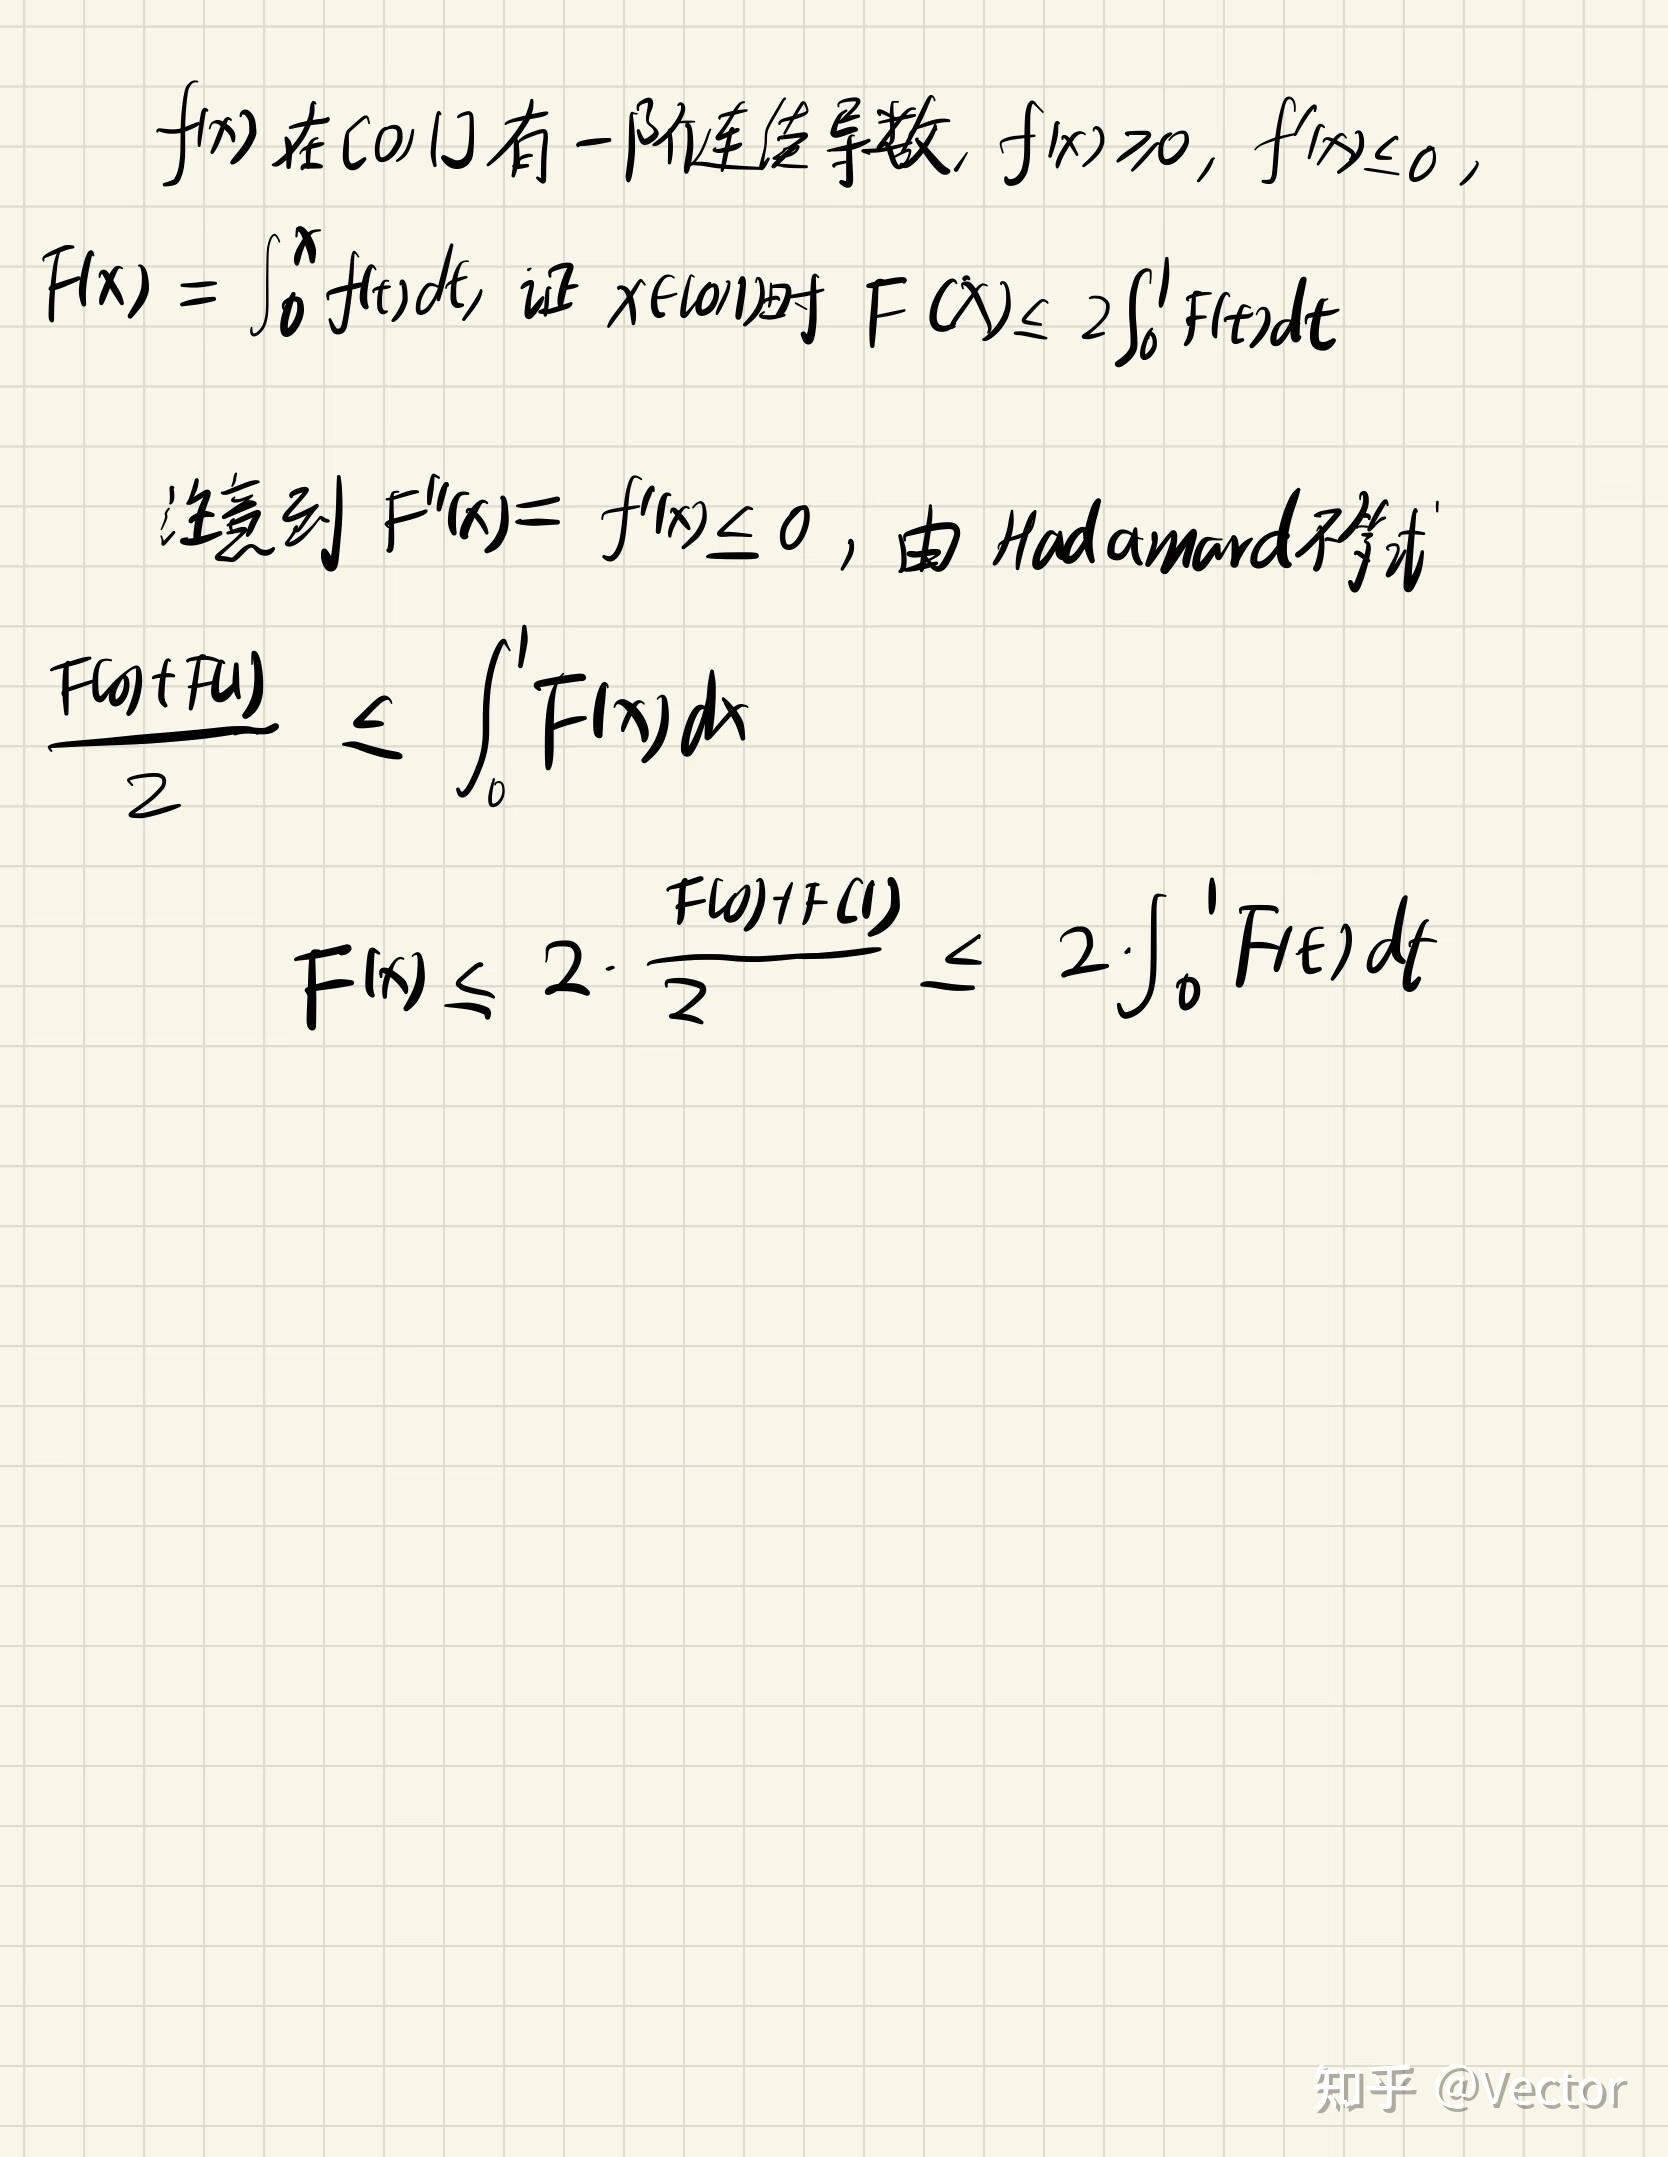 f(x) 在[0,1]有一阶连续导数, f(x)≥0, f'(x)≤0,
F(x) = ∫₀ˣ f(t)dt, 证 x∈(0,1)时 F(x)≤ 2∫₀¹F(t)dt
注意到 F''(x)= f'(x)≤0, 由 Hadamard不等式
(F(0)+F(1))/2 ≤ ∫₀¹ F(x)dx
F(x)≤ 2·(F(0)+F(1))/2 ≤ 2·∫₀¹ F(t)dt
知乎 @Vector